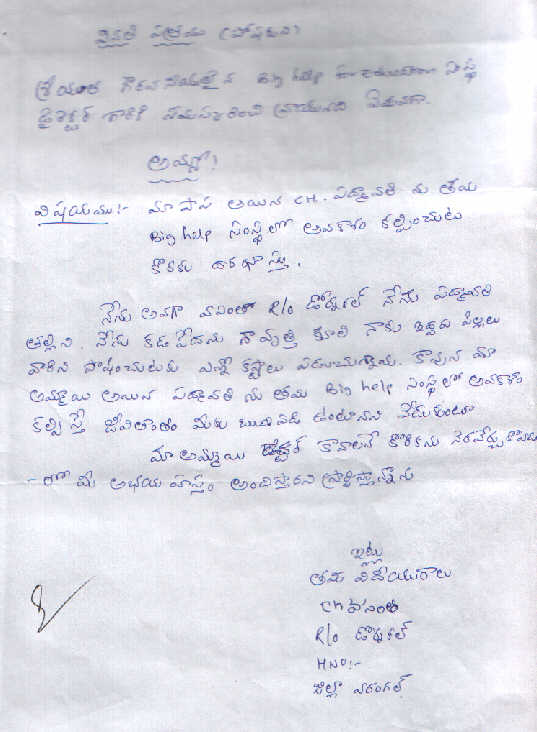 వినతి పత్రము (పోషకుని)
శ్రీయుత గౌరవనీయులైన Big help సంస్థ
డైరెక్టర్ గారికి నమస్కరించి వ్రాయునది ఏమనగా.
అమ్మా!
విషయము:- మా పాప అయిన CH. పద్మావతి ను తమ
Big help సంస్థలో అవకాశం కల్పించుట
కొరకు దరఖాస్తు.
నేను అనగా వసంత R/o డోర్నకల్ నేను పద్మావతి
తల్లిని. నేను కడు పేదను నా వృత్తి కూలి నాకు ఇద్దరు పిల్లలు
వారిని పోషించుటకు ఎన్నో కష్టాలు పడుచున్నాను. కావున మా
అమ్మాయి అయిన పద్మావతి ను తమ Big help సంస్థలో అవకాశం
కల్పిస్తే జీవితాంతం మీకు ఋణపడి ఉంటానని వేడుకుంటూ
మా అమ్మాయి డాక్టర్ కావాలనే కోరికను నెరవేర్చు
-లో మీ అభయ హస్తం అందిస్తారని ప్రార్థిస్తున్నాను
ఇట్లు
తమ విధేయురాలు
CH వసంత
R/o డోర్నకల్
HNO:-
జిల్లా వరంగల్